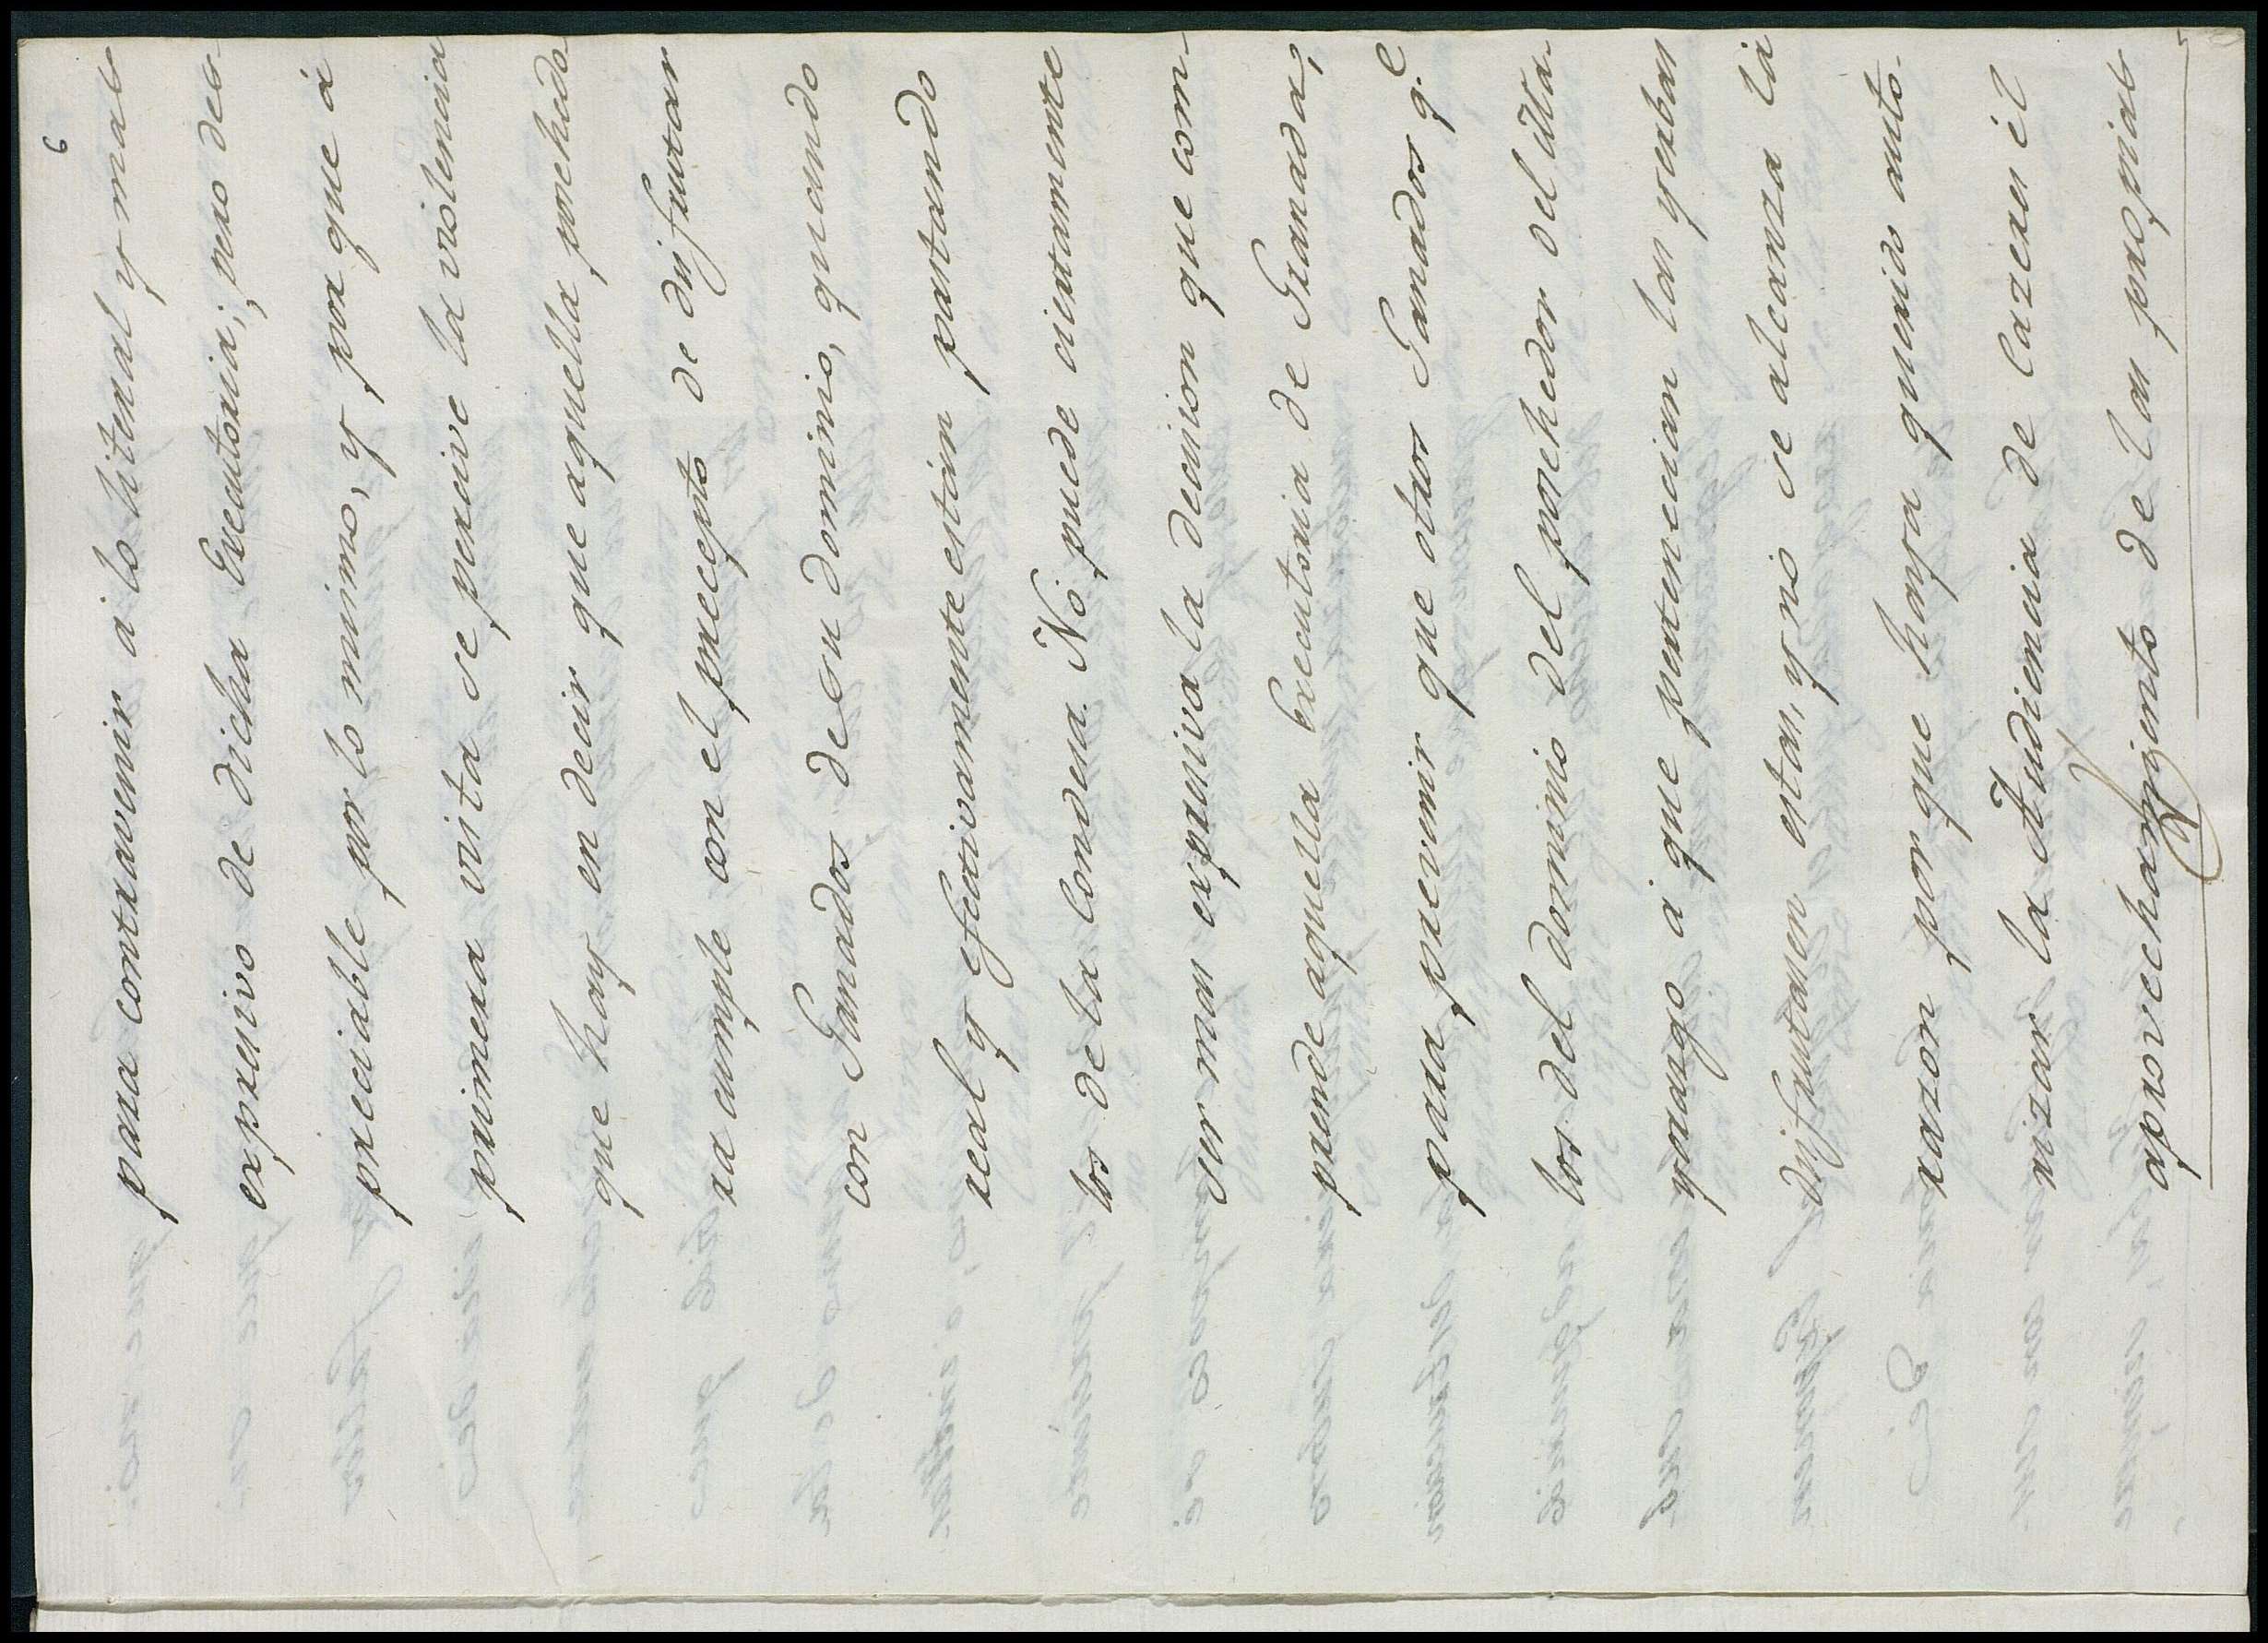 6
para contravenir à lo literal y mas
expresivo de dicha Executoria; pero des-
preciable por lo mismo, y por que à
primera vista se percive la violencia
que hay en decir que aquella posehedo-
ra cumple con el precepto de disfrutar
con Ganados de su dominio, quando
real y efectivamente están pastando
los de la Condesa. No puede ciertamente
ser mas expresiva la decision que com-
prende aquella Executoria de Granada,
para prevenir que otros Ganados q.e
los del dominio del posehedor del Ma-
yorazgo à que pertenecian las yerbas
disfrutasen estas, y no se alcanza la
razon por que haya querido auto-
rizar la Audiencia de Cazeres èl
aprovechamiento de las propias